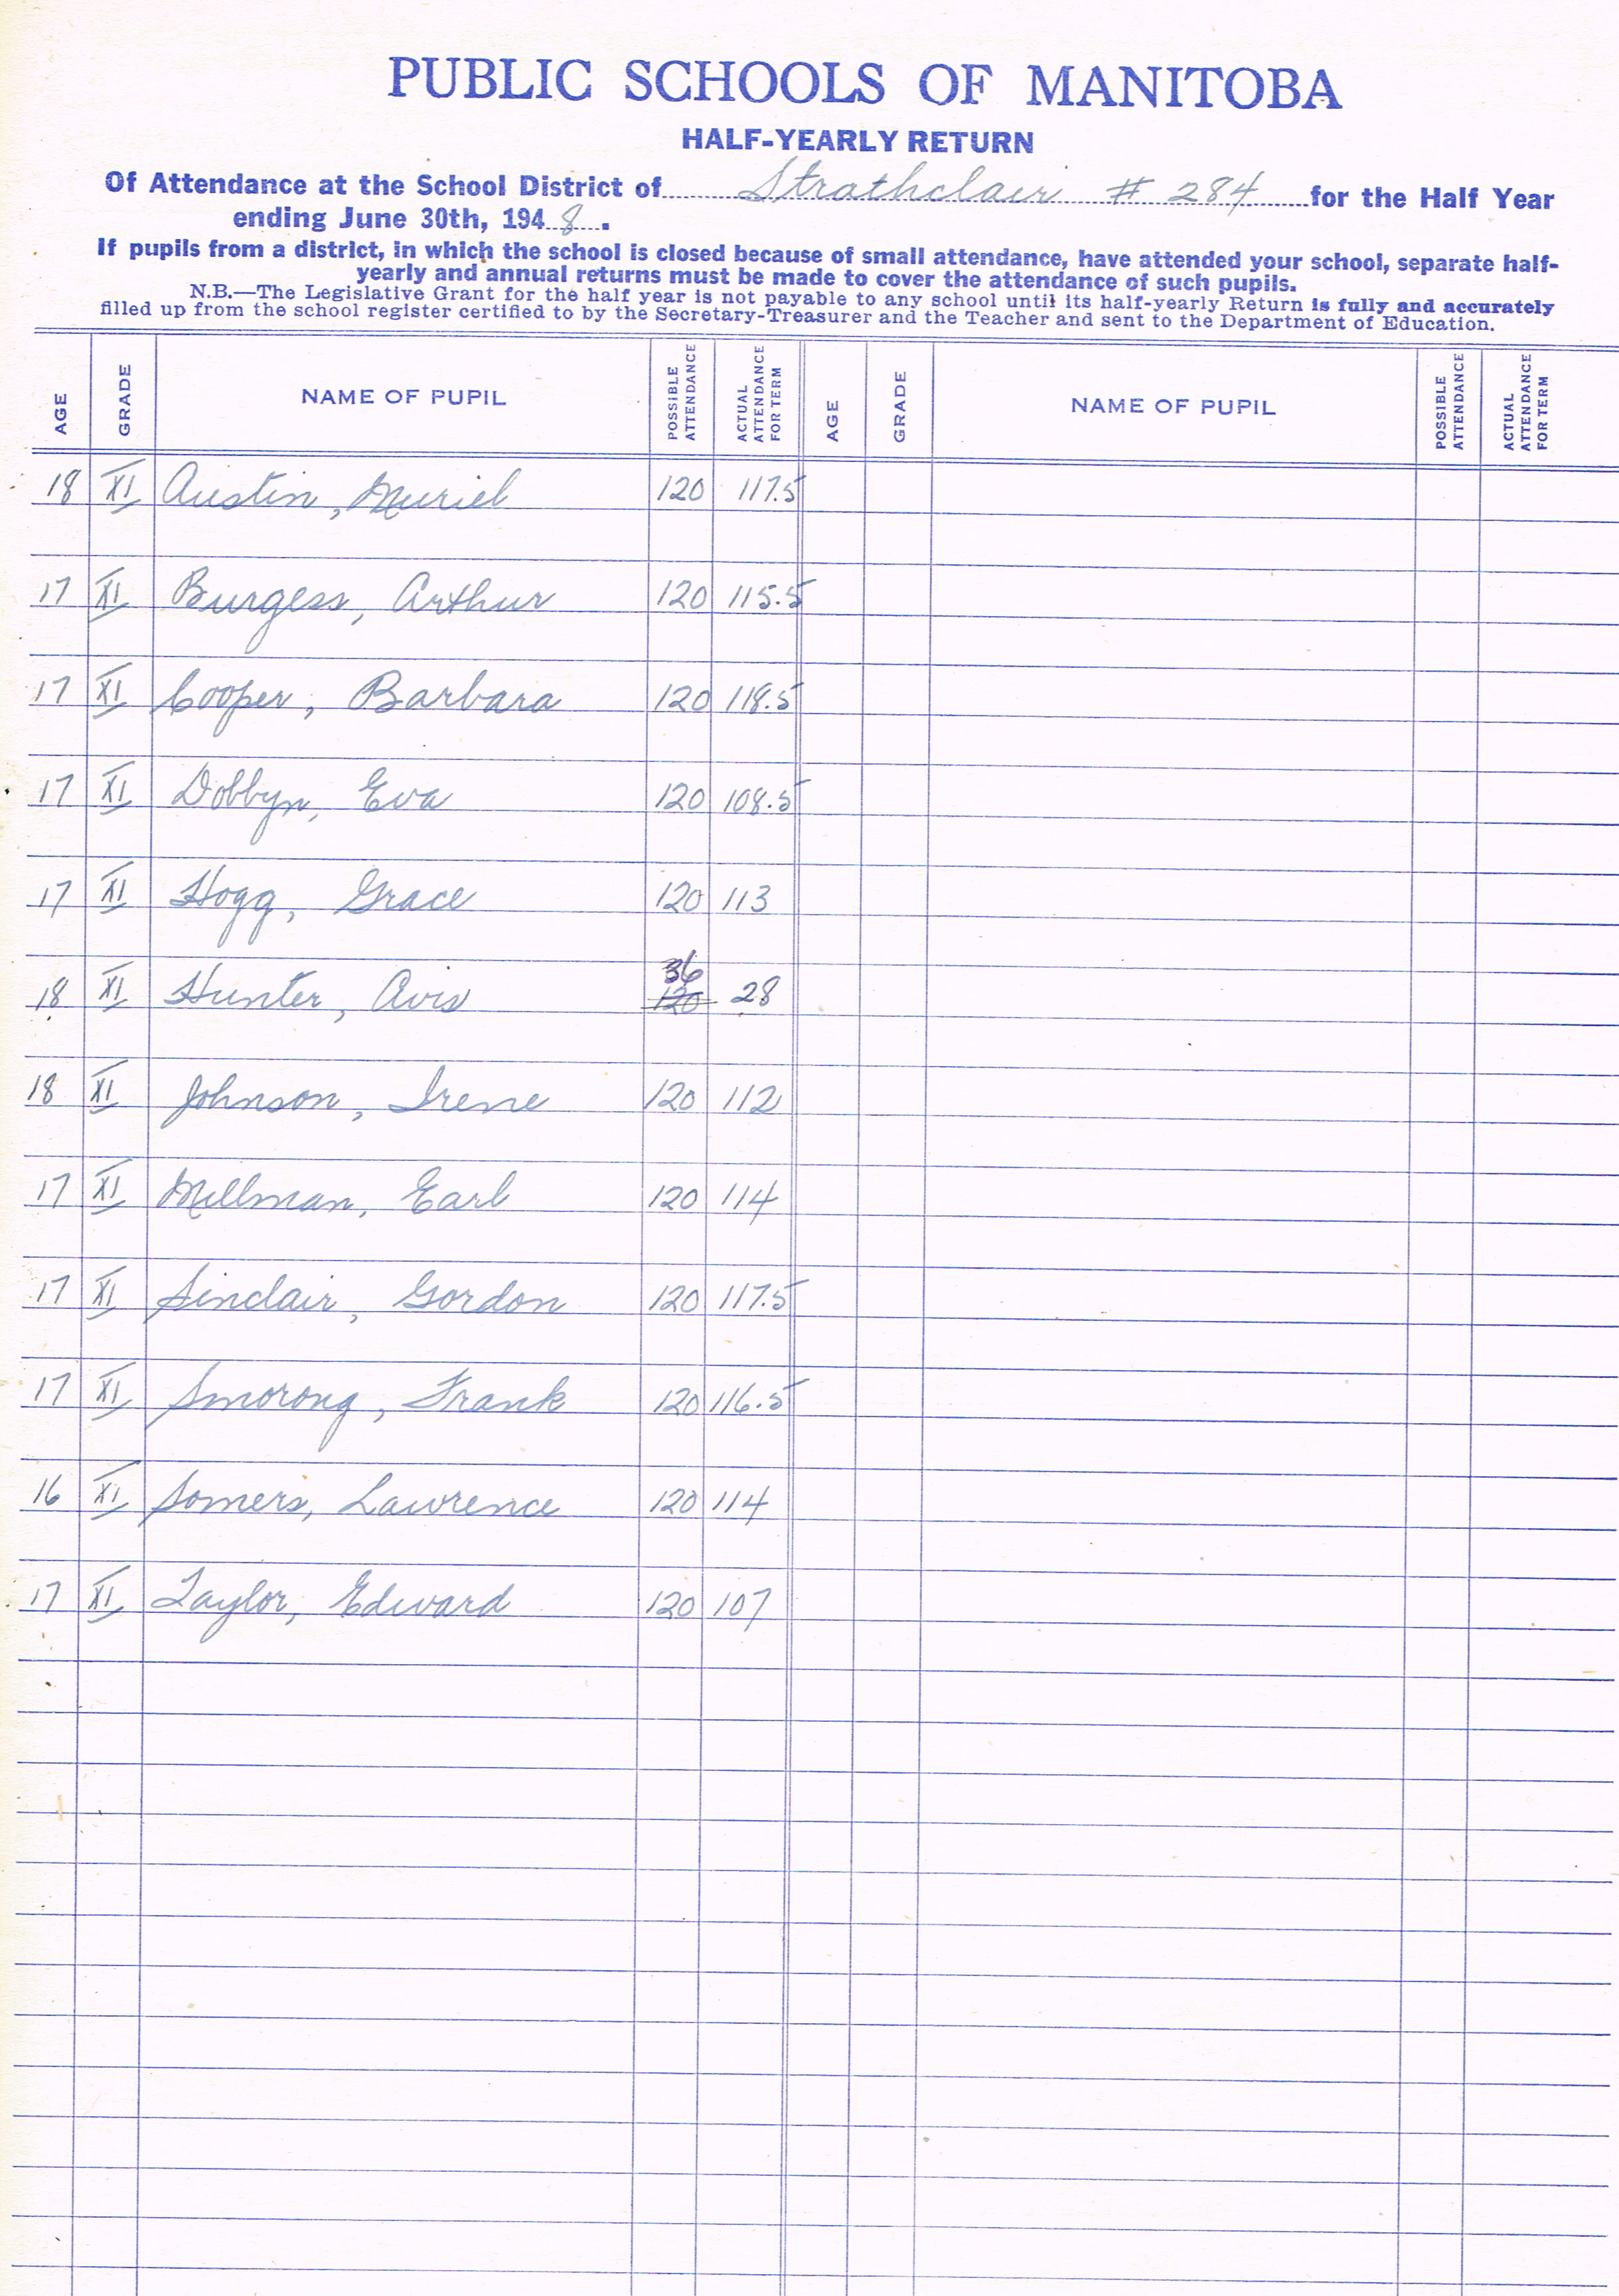 PUBLIC SCHOOLS OF MANITOBA
HALF-YEARLY RETURN
Of Attendance at the School District of Strathclair # 284 for the Half Year
ending June 30th, 1948.
If pupils from a district, in which the school is closed because of small attendance, have attended your school, separate half-
yearly and annual returns must be made to cover the attendance of such pupils.
N.B.—The Legislative Grant for the half year is not payable to any school until its half-yearly Return is fully and accurately
filled up from the school register certified to by the Secretary-Treasurer and the Teacher and sent to the Department of Education.
AGE GRADE NAME OF PUPIL POSSIBLE ATTENDANCE ACTUAL ATTENDANCE FOR TERM AGE GRADE NAME OF PUPIL POSSIBLE ATTENDANCE ACTUAL ATTENDANCE FOR TERM
18 XI Austin, Muriel 120 117.5
17 XI Burgess, Arthur 120 115.5
17 XI Cooper, Barbara 120 118.5
17 XI Dobbyn, Eva 120 108.5
17 XI Hogg, Grace 120 113
36
18 XI Hunter, Avis 120 28
18 XI Johnson, Irene 120 112
17 XI Millman, Earl 120 114
17 XI Sinclair, Gordon 120 117.5
17 XI Smorong, Frank 120 116.5
16 XI Somers, Lawrence 120 114
17 XI Taylor, Edward 120 107